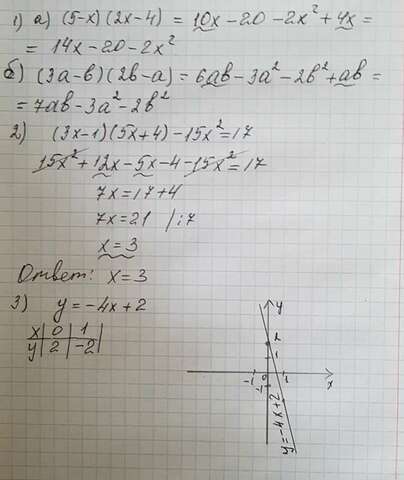 1) а) (5-x)(2x-4) = 10x-20-2x²+4x =
= 14x-20-2x²
б) (3a-b)(2b-a) = 6ab-3a²-2b²+ab =
= 7ab-3a²-2b²
2) (3x-1)(5x+4)-15x²=17
15x²+12x-5x-4-15x²=17
7x=17+4
7x=21 /:7
x=3
Ответ: x=3
3) y=-4x+2
x 0 1
y 2 -2
y
2
1
-1 0 1
x
-1
y=-4x+2